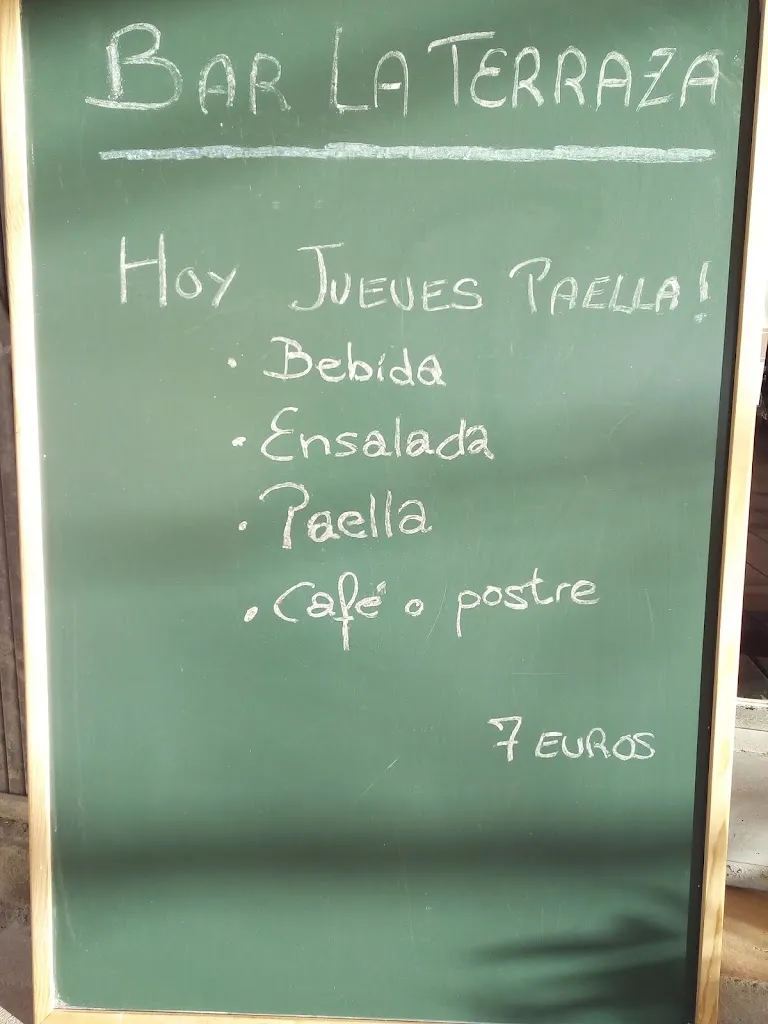 BAR LA TERRAZA
HOY JUEVES PAELLA!
· Bebida
· Ensalada
· Paella
· Café o postre
7 EUROS